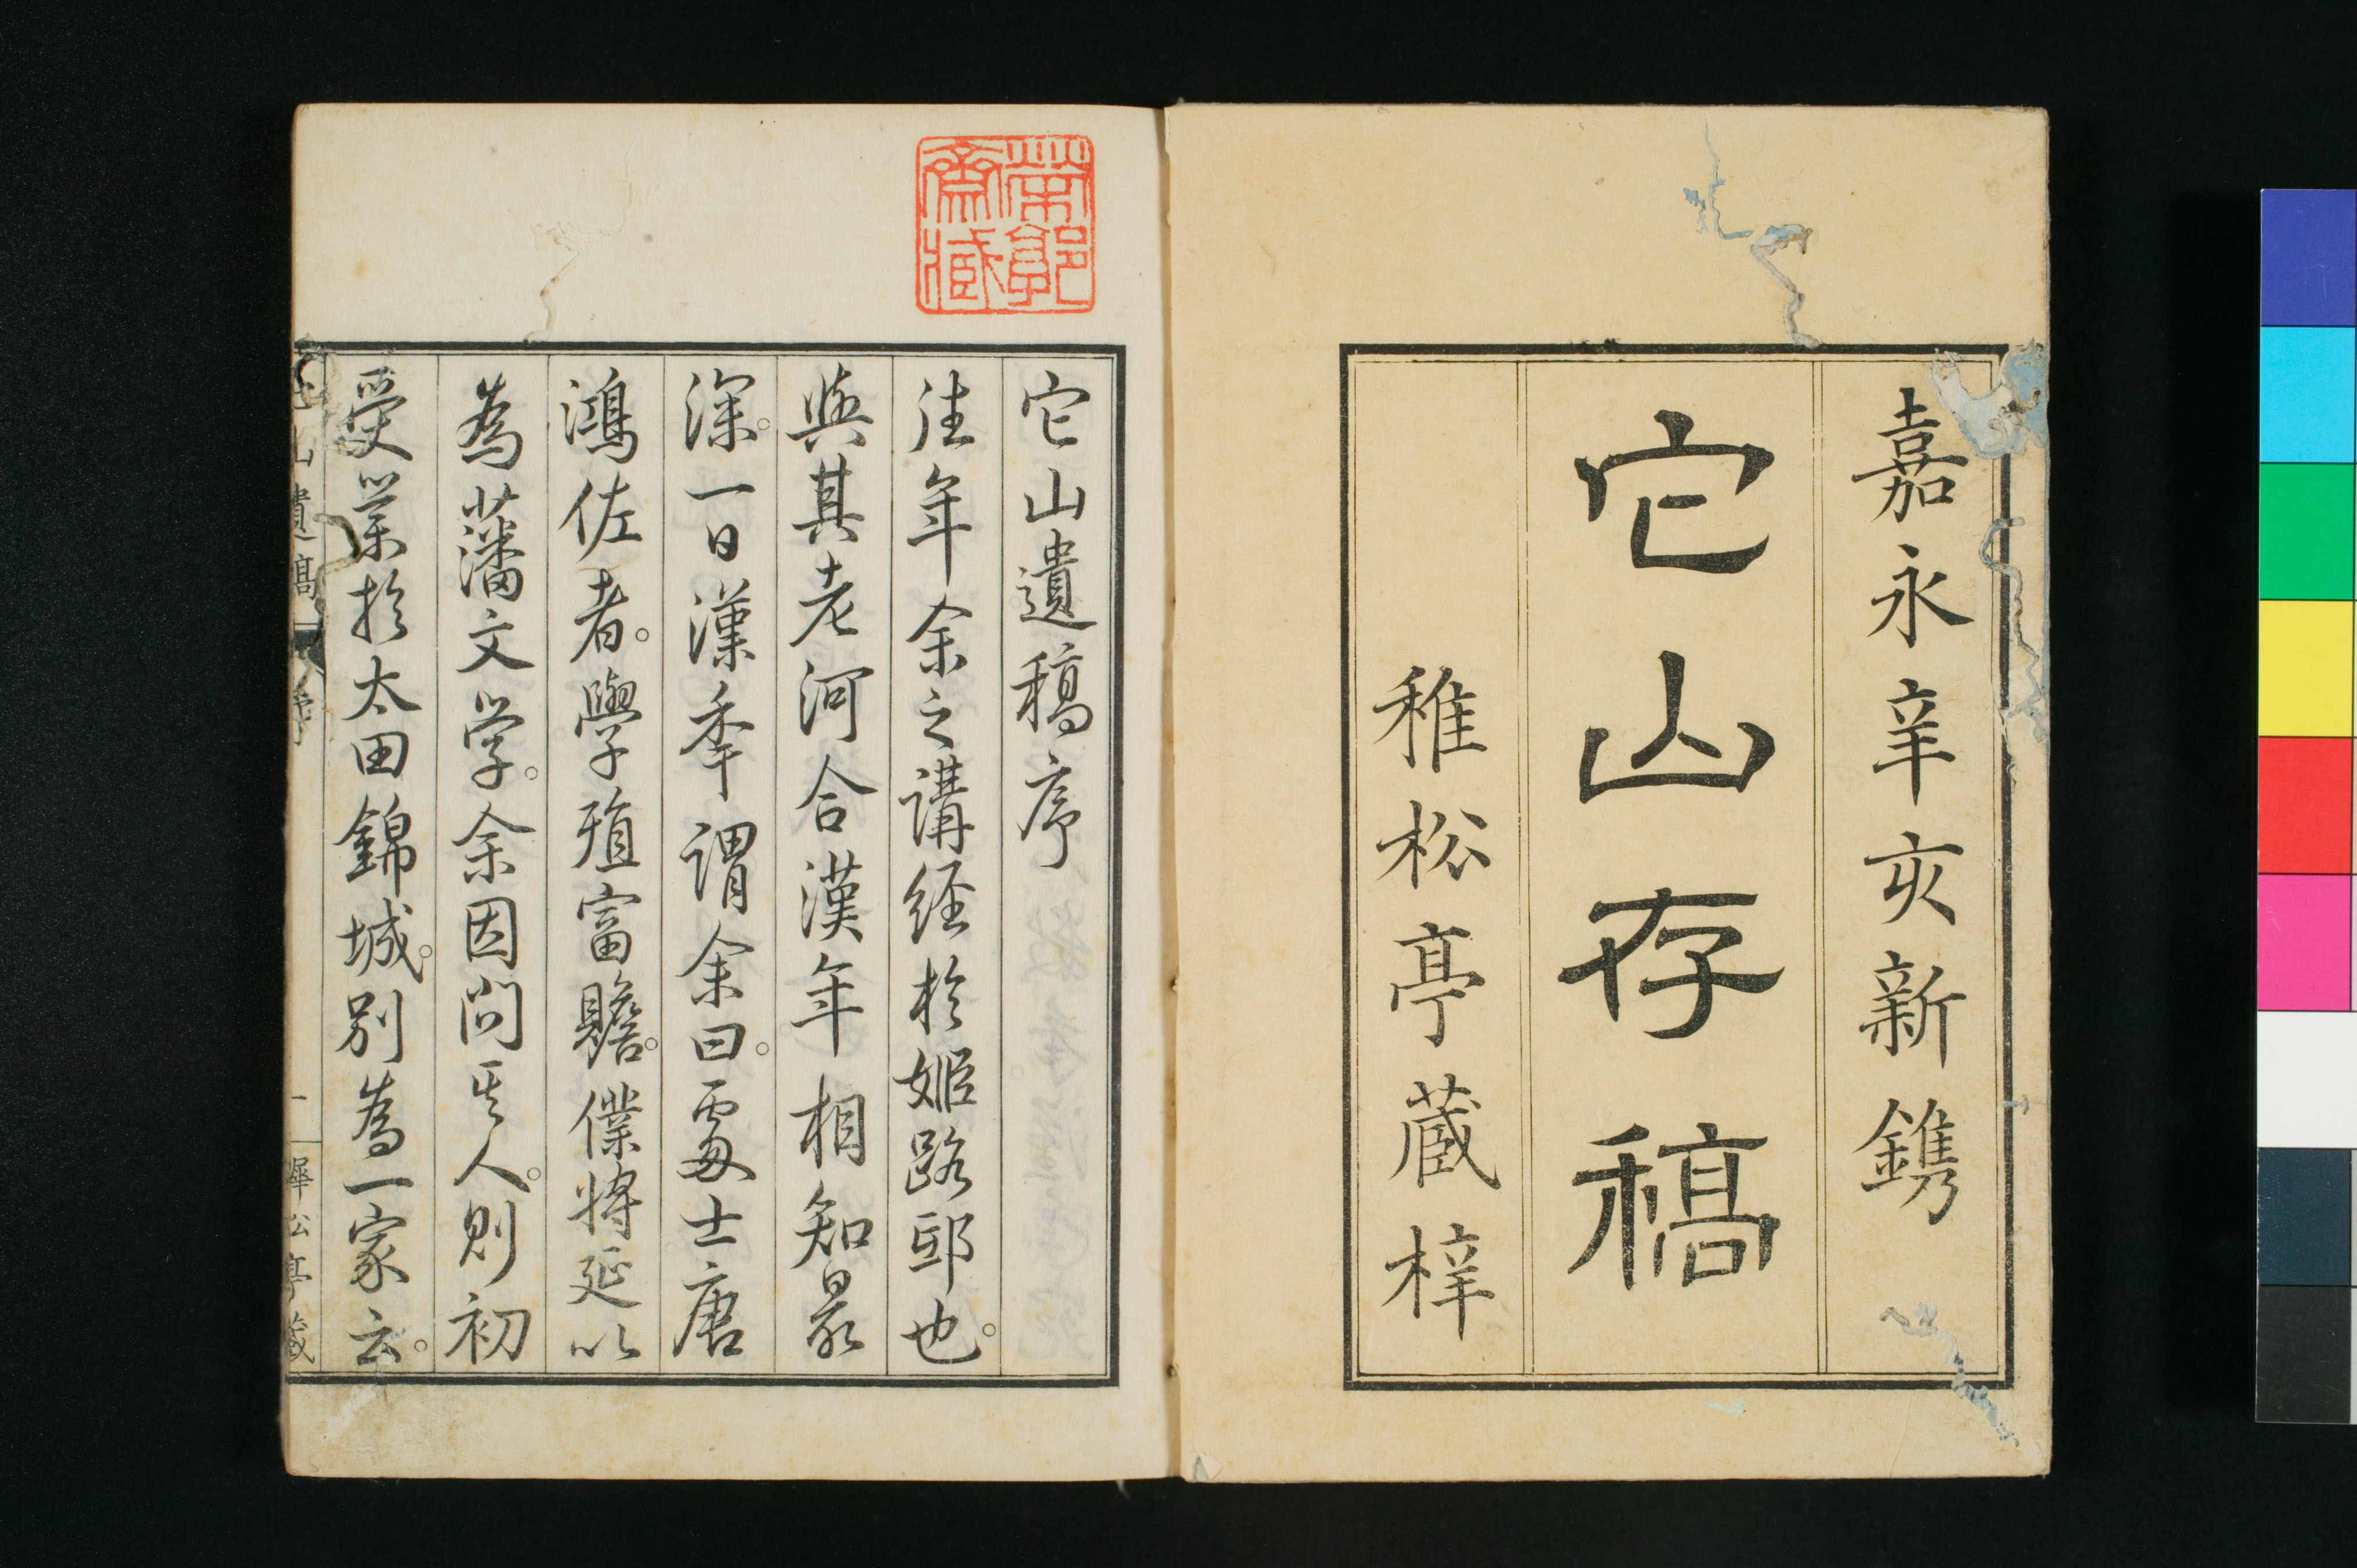 嘉永辛亥新鐫
它山存稿
稚松亭蔵梓
它山遺稿序
往年余之講経於姫路邸也。
與其老河合漢年相知最
深。一日漢年謂余曰。處士唐
鴻佐者。學殖富贍。僕將延以
為藩文学。余因问其人。則初
受業於太田錦城。別為一家云。